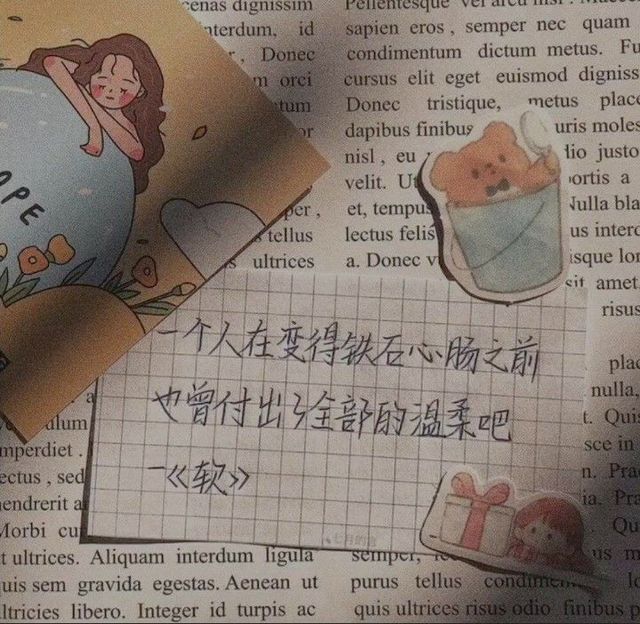 cenas dignissim
nterdum, id
, Donec
m orci
tum
or
per,
tellus
s ultrices
sapien eros, semper nec quam
condimentum dictum metus. Fu
cursus elit eget euismod digniss
Donec tristique, metus place
dapibus finibus uris moles
nisl, eu dio justo
velit. Ut ortis a
et, tempus Nulla bla
lectus felis us interd
a. Donec v isque lor
sit amet.
risus
OPE
一个人在变得铁石心肠之前
也曾付出了全部的温柔吧
-《软》
a
ulum
mperdiet.
ectus, sed
hendrerit a
Morbi cur
t ultrices. Aliquam interdum ligula
uis sem gravida egestas. Aenean ut
ltricies libero. Integer id turpis ac
plac
nulla,
t. Quis
sce in
n. Pra
ia. Pra
Qu
semper, us m
purus tellus condimen
quis ultrices risus odio finibus p